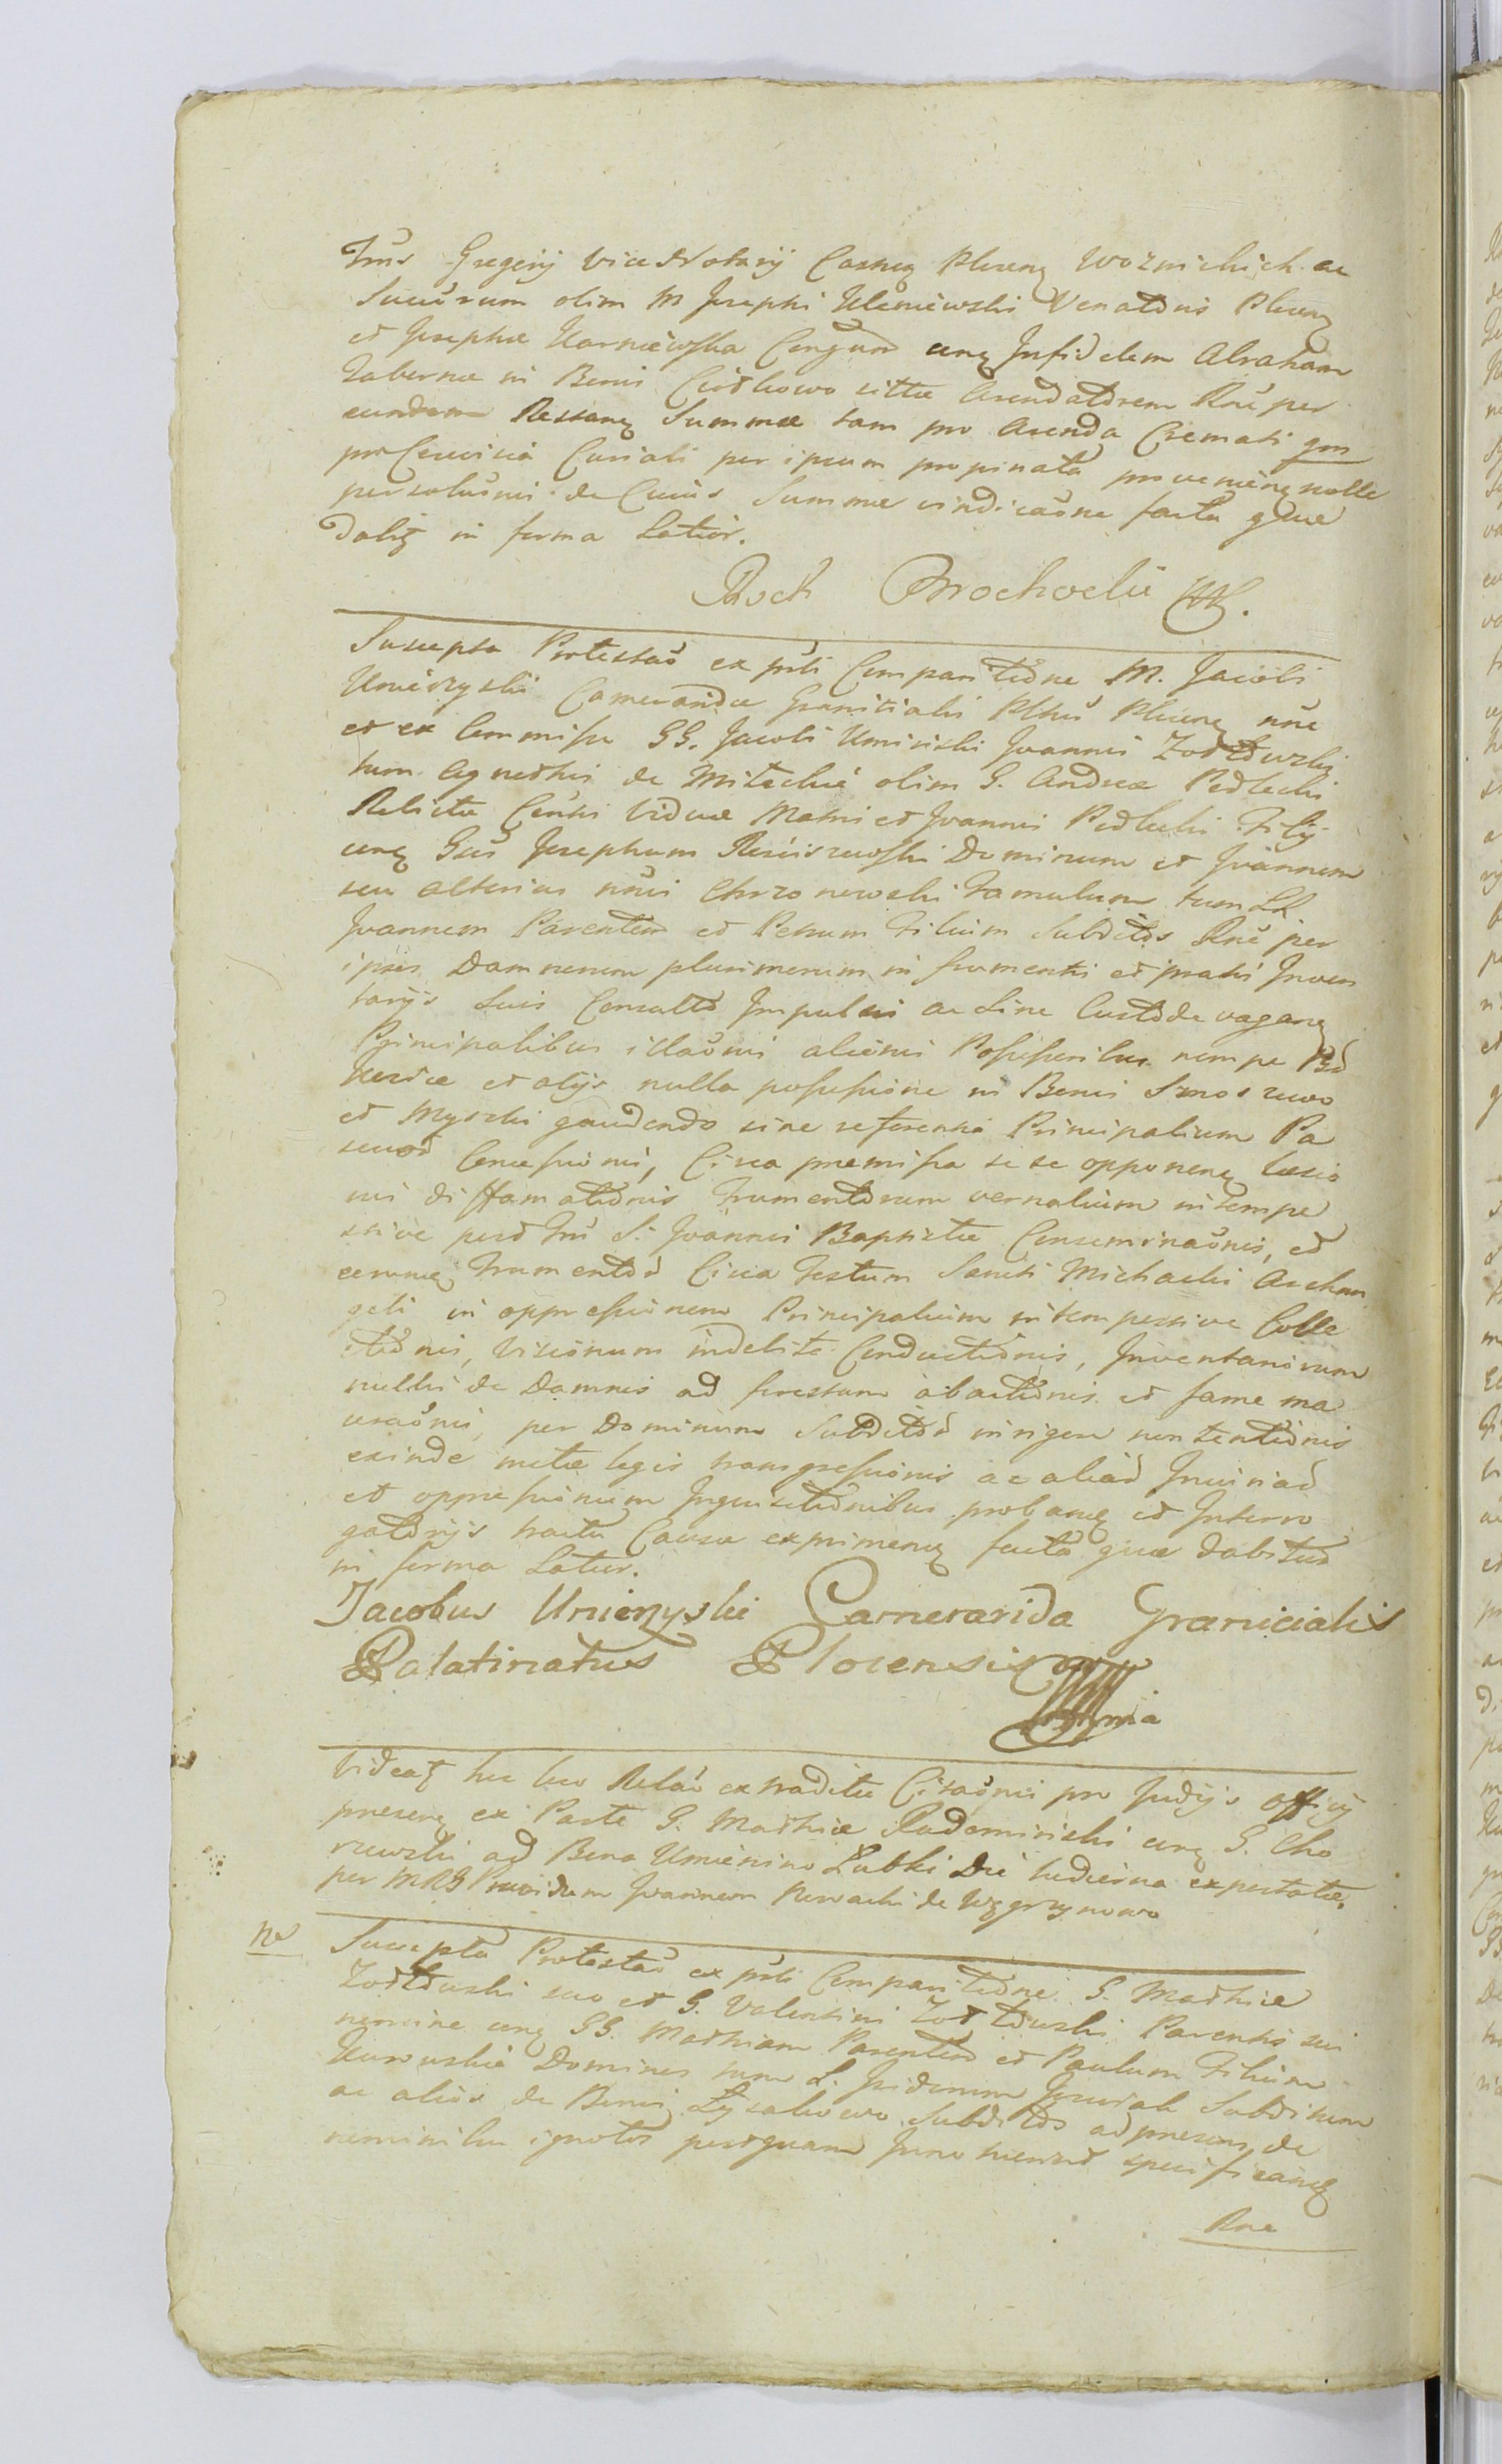 Gregorij Vice Notarij Plocen Woznickich ac
Sucorum olim M Josephi Ulaniewski Venatoris Plocen
et Josepha Karniewska Conjugum cung Infidelem Abraham
Tabernæ in Bonis Ciółkowo sittæ Arendatorem Rnē per
eundem Restang Summæ tam pro Arenda Cremati qm
pro Cerevisia Curiali per ipsum propinata proveniēng nolle
persolūnis de Cuius Summæ vindicaōne facta quæ
Dabit in forma Latior.
Roch Brochocki
Suscepta Protestaō ex psti Comparitione M. Jacobi
Umienzyski Camerarida Granitialis Pltus Plocens nōe
et ex Commisso GG. Jacobi Umiński Joannis Zołtowski
tum Agnethis de Miteckie olim G. Andreæ Podlecki
Relictæ Consti Viduæ Matris et Joannis Podlecki Filij
cung Gsūs Josephum Rościszewski Dominum et Joannem
seu alterius nōis Chrzonowski Famulum tum LL
Joannem Parentem et Petrum Filium Subditos Rnē per
ipsos Damnorum plurimorum in frumentis et pratis Inven
tarijs suis Consulto Impulsis ac sine Custode vagang
Principalibus illaōnis alienis Possessoribus nempe
et alijs nulla possessione in Bonis Smoszewo
et Myszki gaudendo sine referentia Principalium Pa
Concessionis, Circa præmissa se se opponeng læsio
nis diffamationis Frumentorum vernalium intempe
stive post S. Joannis Baptistæ Conseminaōnis, et
eorung Frumentor Circa Festum Sancti Michaelis Archan
geli in oppressionem Principalium intempestive Colle
ctionis, Visionum indebite Conductionis, Inventariorum
nullis de Damnis ad forestum abactionis et fame ma
ceraōnis, per Dominum Subditor in rigore non tentionis
exinde metæ legis transgressionis ac aliar Injuriar
et oppressionum Inquisitionibus probang et Interro
gatorijs tractu Causæ exprimeng facta quæ dabitur
in forma Latior.
Jacobus Umienzyski Camerarida Graniciales
Palatinatus Plocensis
Videat hic loco Relaō extraditæ Citaōnis pro Judijs Officij
preseng ex Parte G. Mathiæ Radomiński cung G. Cho
rzewski ad Bona Umienino Łubki Die hodierna expertatæ,
per MRG Providum Joannem Nowacki de Węgrzynowo
Na Suscepta Protestaō ex psti Comparitione G. Mathiæ
Zołtowski suo et G. Valentini Zołtowski Parentis sui
nomine cung GG. Mathiam Parentem et Paulum Filium
Dominos tum L. Isidorum Subditum
ac alios de Bonis Łysakowo Subditos ad presens de
nominibus ignotos postquam specificang
Rne